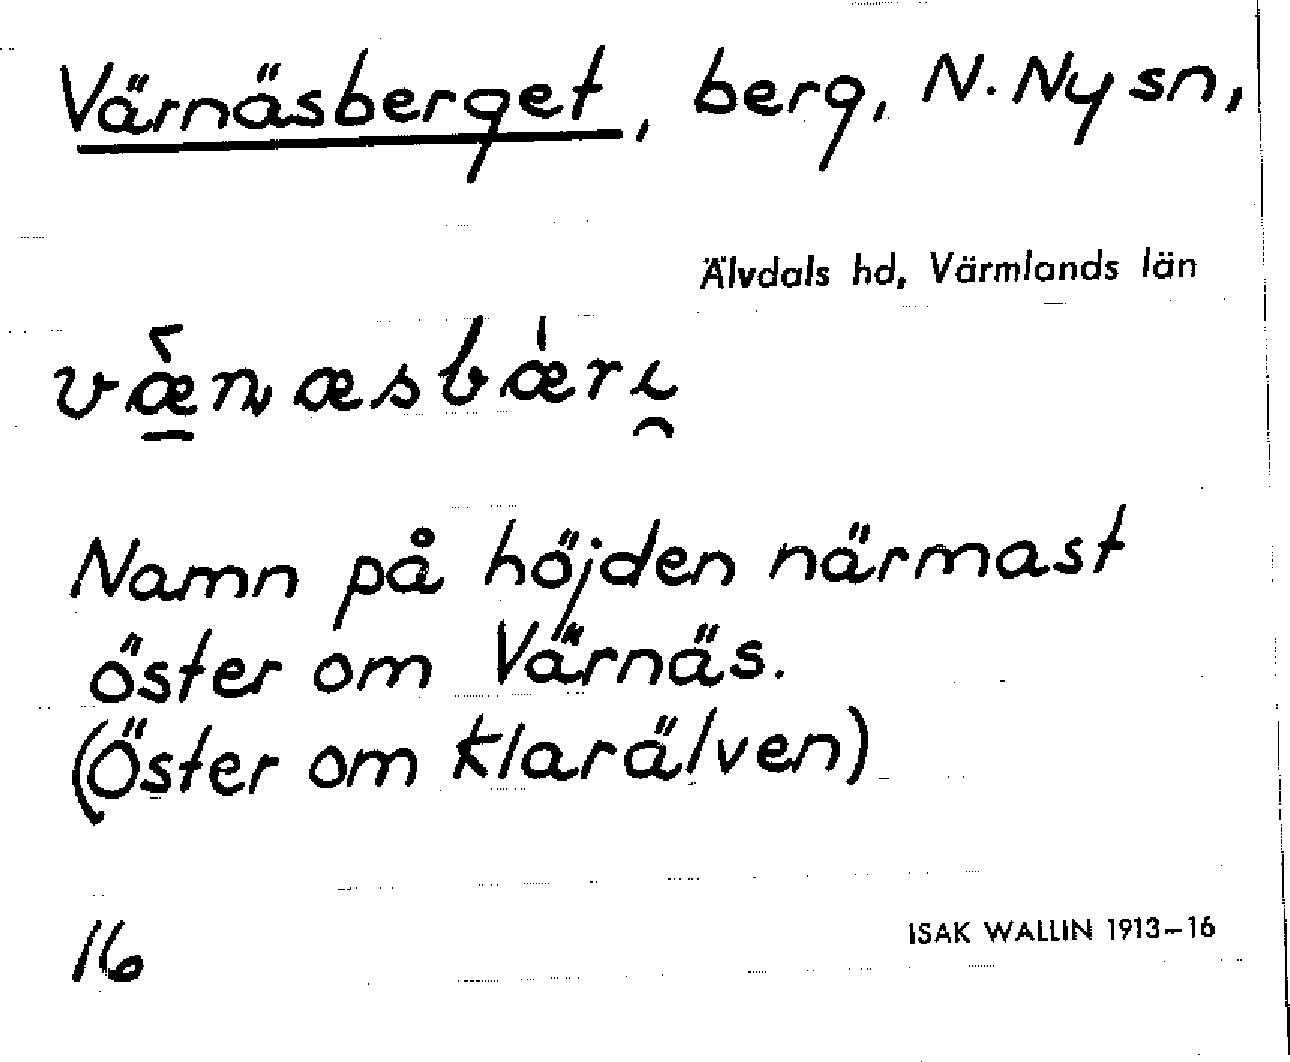 Värnäsberget, berg, N. Ny sn,
Älvdals hd, Värmlands län
væ̠̀næsbǽri̯
Namn på höjden närmast
öster om Värnäs.
(Öster om Klarälven)
16
ISAK WALLIN 1913–16